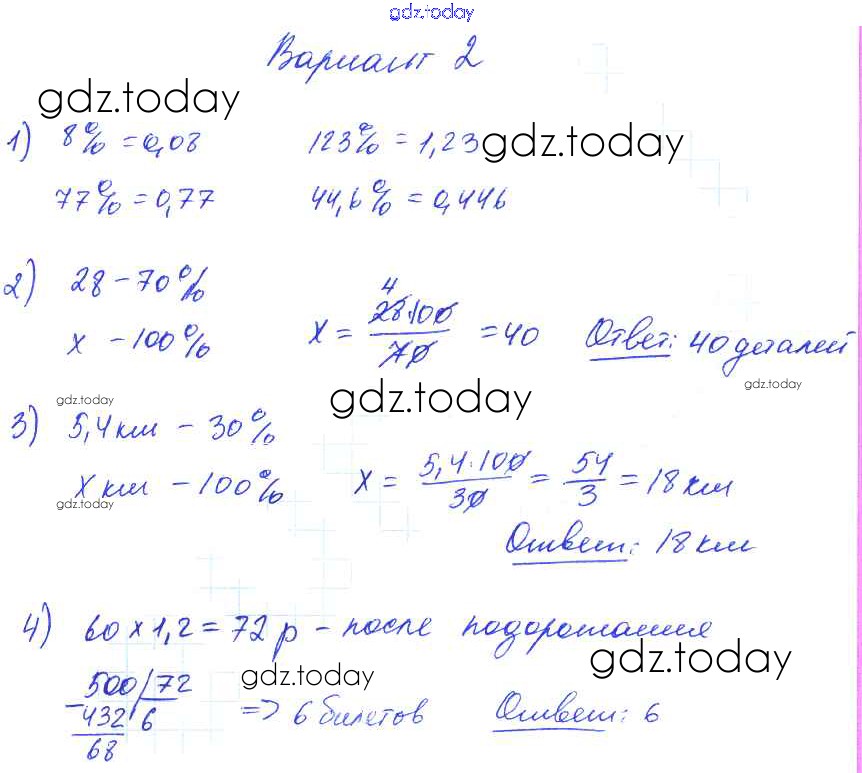 gdz.today
Вариант 2
gdz.today
1) 8% = 0,08 123% = 1,23 gdz.today
77% = 0,77 44,6% = 0,446
2) 28 - 70%
x - 100% x = 28·100/70 = 40 Ответ: 40 деталей
4
gdz.today gdz.today gdz.today
3) 5,4 км - 30%
x км - 100% x = 5,4·100/30 = 54/3 = 18 км
gdz.today
Ответ: 18 км
4) 60 x 1,2 = 72 р - после подорожания
gdz.today gdz.today
500 72
- 432 6 => 6 билетов Ответ: 6
68